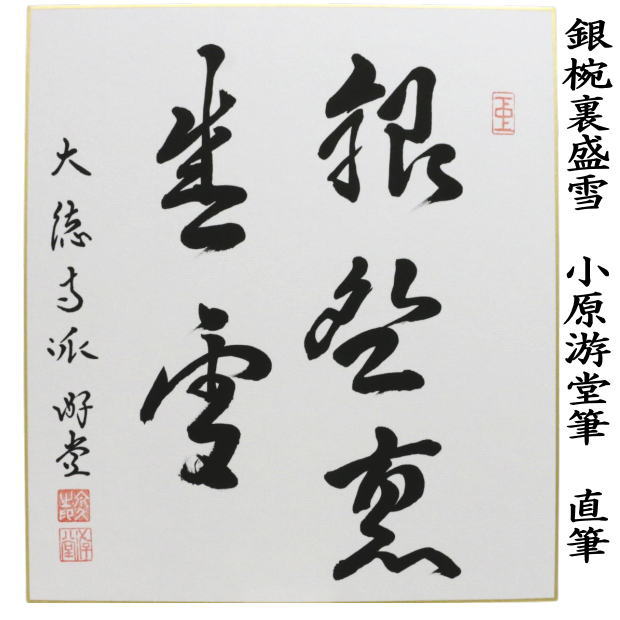 銀椀裏盛雪 小原游堂筆 直筆
銀盌裏
盛雪
大徳寺派 游堂